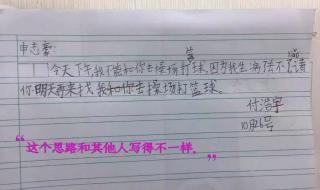 申志豪:
今天下午,我不能和你去操场打篮球,因为我生病去不了,请
你明天再来找我和你去操场打篮球。
付浩宇
10月26号
“这个思路和其他人写得不一样。”